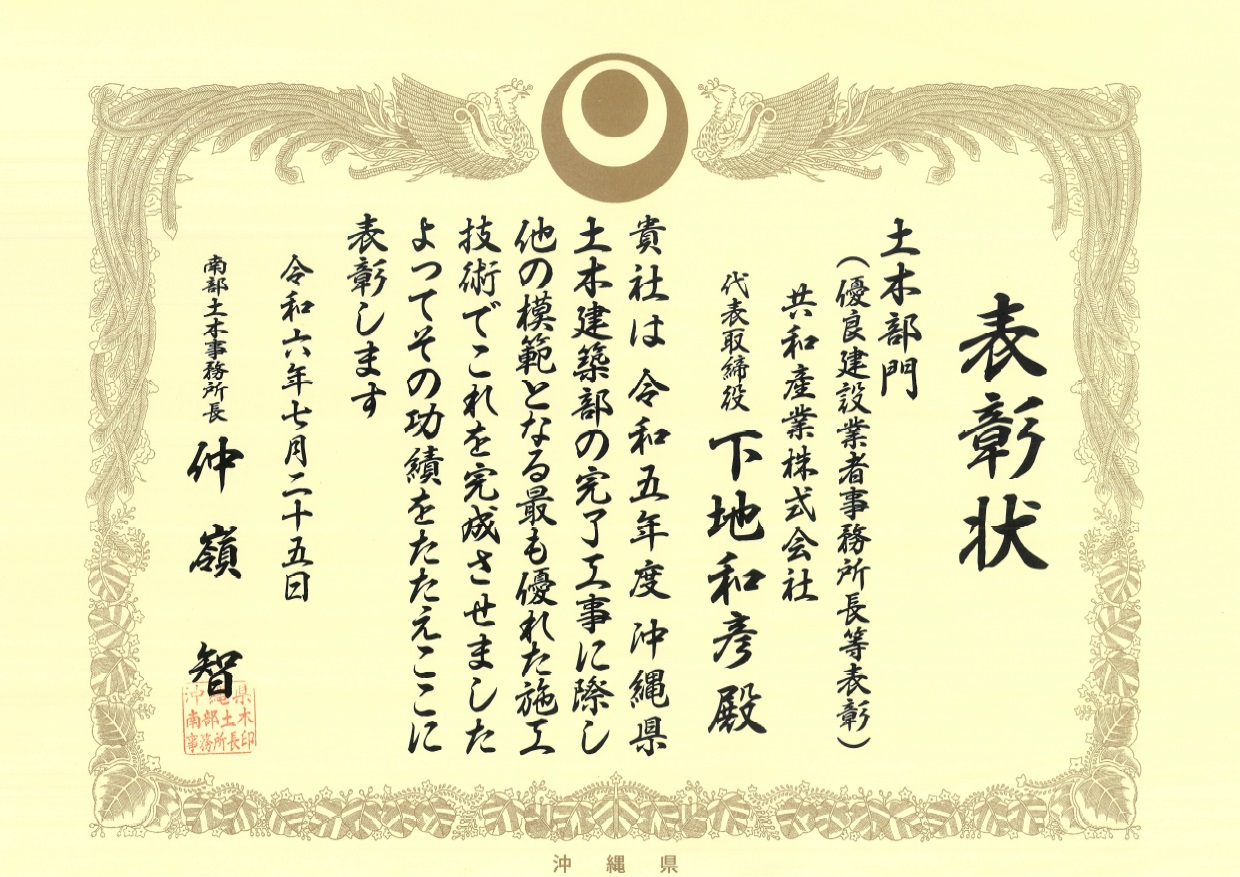 表彰状
土木部門
（優良建設業者事務所長等表彰）
共和産業株式会社
代表取締役 下地和彦殿
貴社は令和五年度沖縄県
土木建築部の完了工事に際し
他の模範となる最も優れた施工
技術でこれを完成させました
よってその功績をたたえここに
表彰します
令和六年七月二十五日
南部土木事務所長 仲嶺智
沖縄県
南部土木
事務所長印
沖縄県